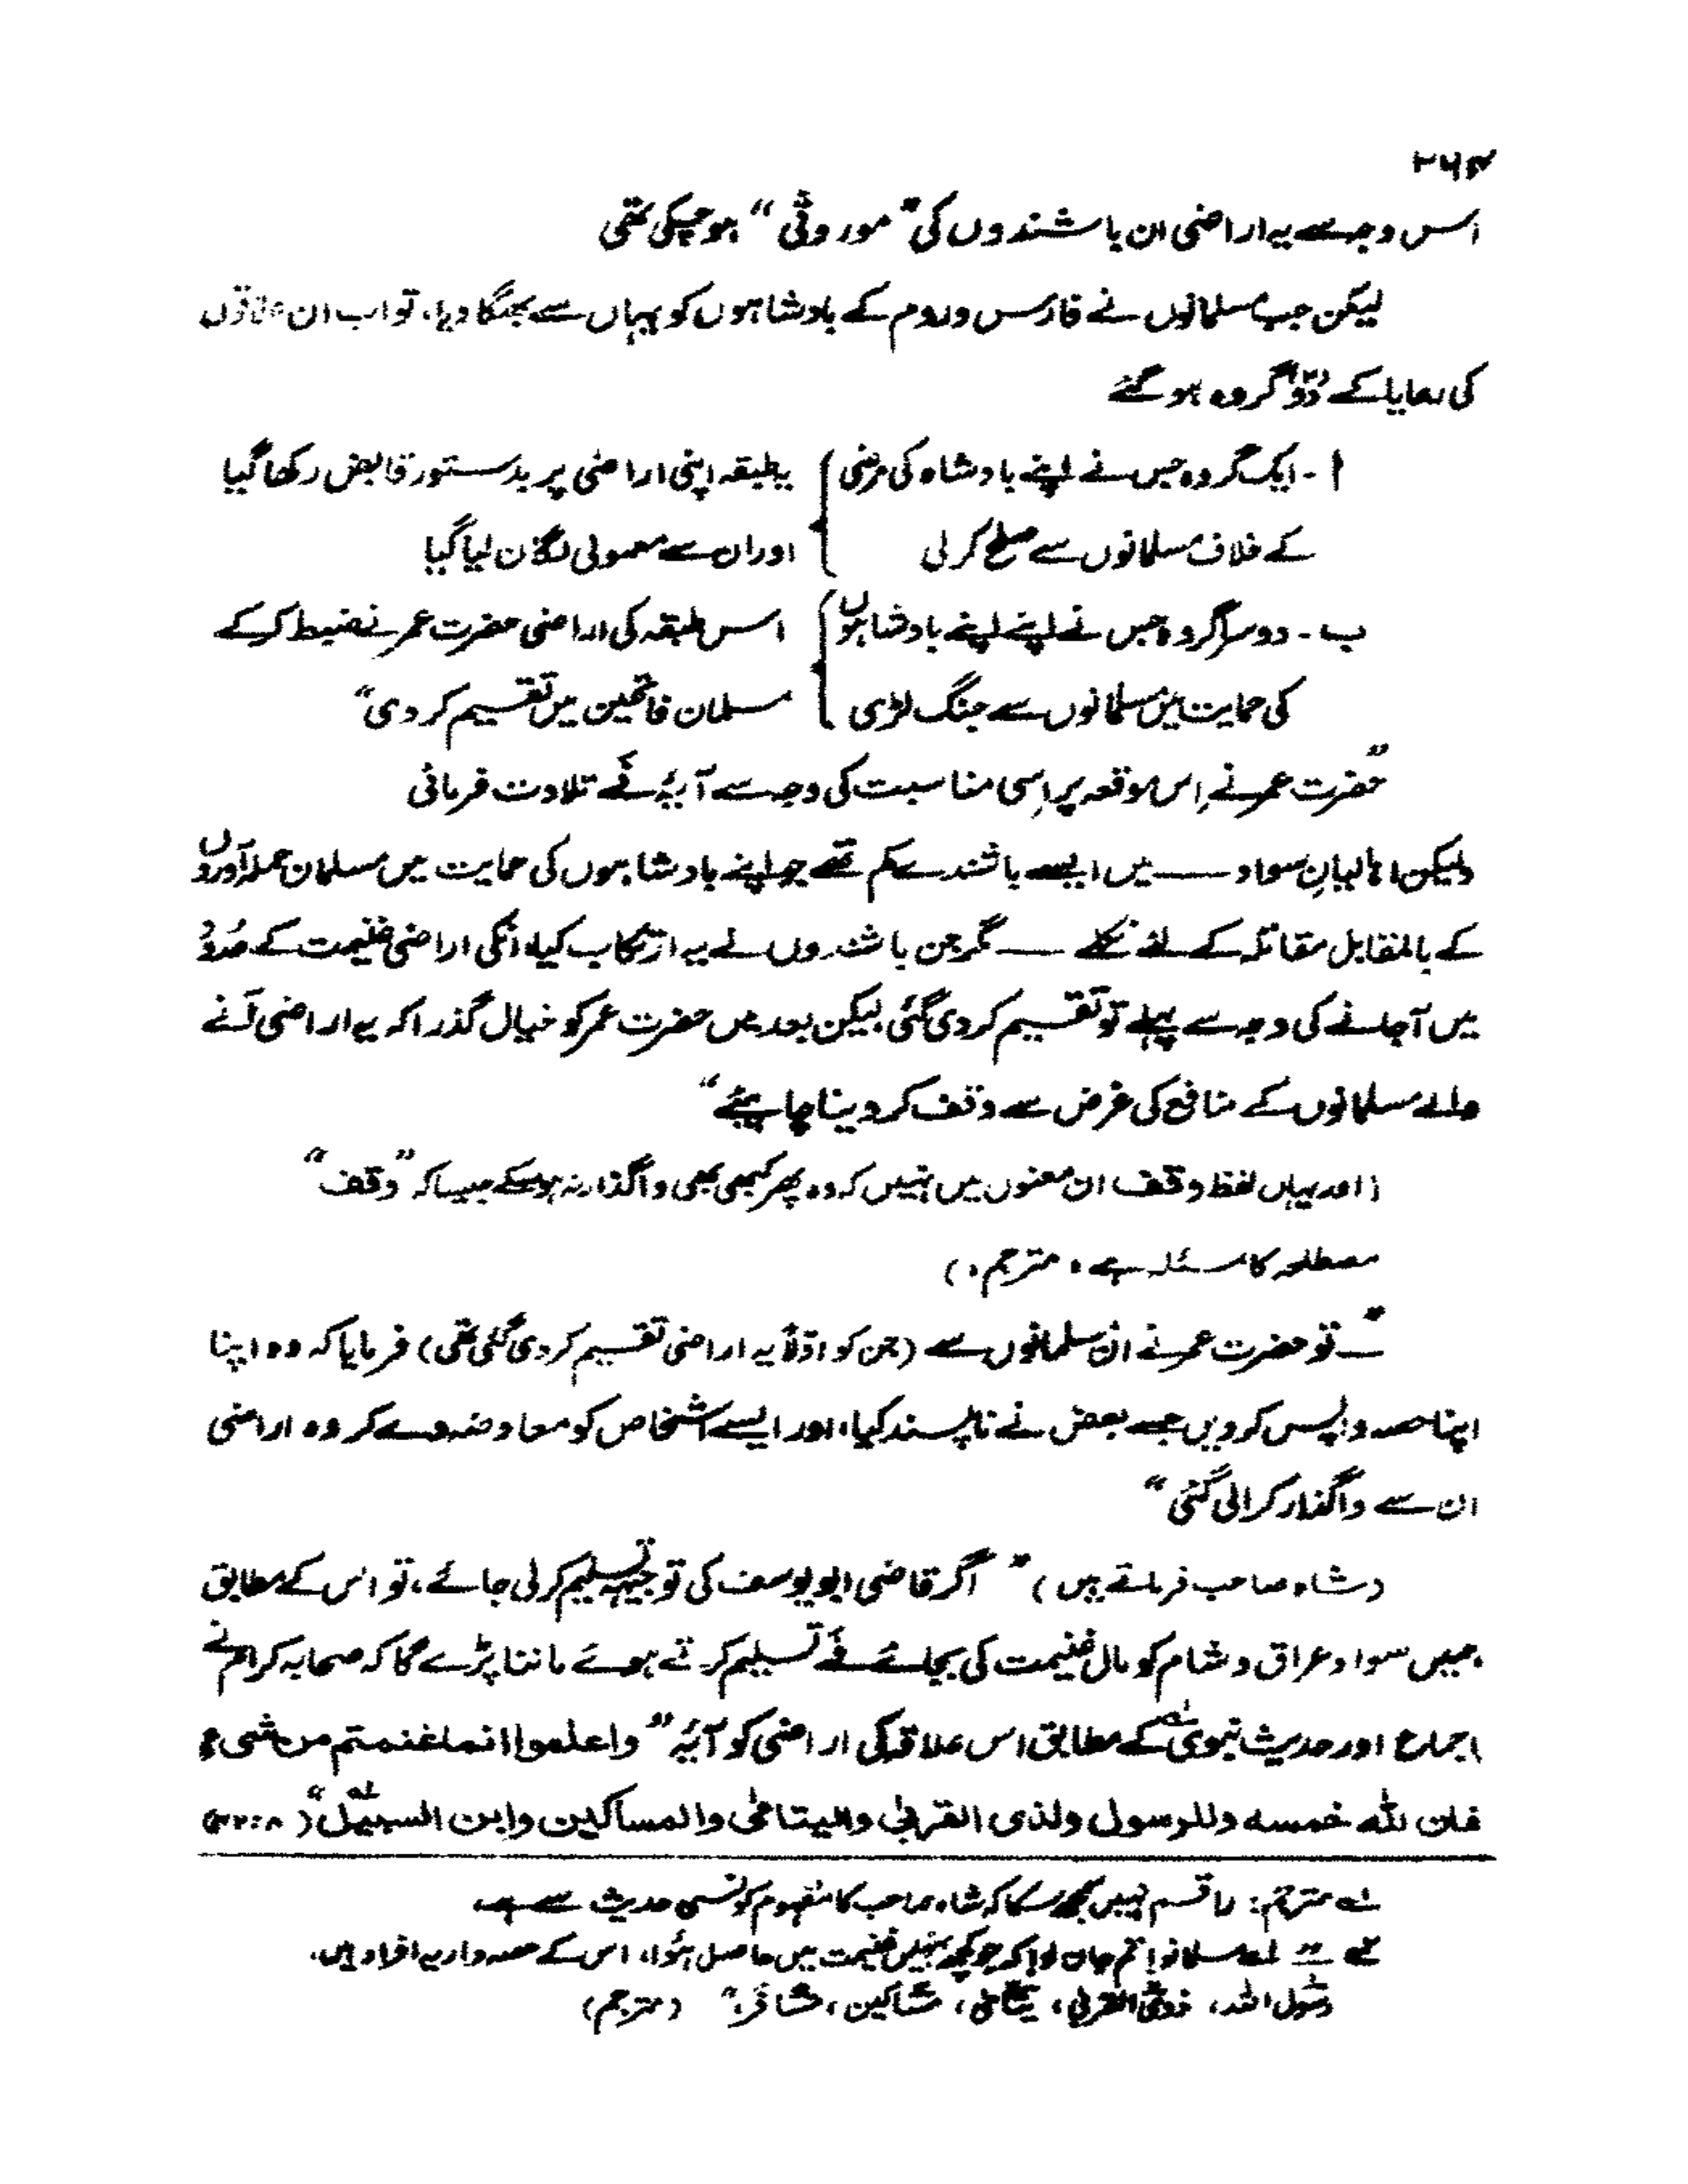 ۲۶۴
اس وجہ سے یہ اراضی ان باشندوں کی "موروثی" ہو چکی تھی
لیکن جب مسلمانوں نے فارس و روم کے بادشاہوں کو یہاں سے بھگا دیا، تو اب ان علاقوں
کی رعایا کے دو (۲) گروہ ہو گئے
ا - ایک گروہ جس نے اپنے بادشاہ کی مرضی } یہ طبقہ اپنی اراضی پر بدستور قابض رکھا گیا
کے خلاف مسلمانوں سے صلح کر لی } اور ان سے معمولی لگان لیا گیا
ب - دوسرا گروہ جس نے اپنے اپنے بادشاہوں } اس طبقہ کی اراضی حضرت عمر نے ضبط کر کے
کی حمایت میں مسلمانوں سے جنگ لڑی } مسلمان فاتحین میں تقسیم کر دی"
"حضرت عمر نے اِس موقعہ پر اِسی مناسبت کی وجہ سے آیۂ فَے تلاوت فرمائی
ولیکن اہالیانِ سواد — میں ایسے باشندے کم تھے جو اپنے بادشاہوں کی حمایت میں مسلمان حملہ آوروں
کے بالمقابل مقاتلہ کے لئے نکلے — مگر جن باشندوں نے یہ ارتکاب کیا، انکی اراضی غنیمت کے حدود
میں آ جانے کی وجہ سے پہلے تو تقسیم کر دی گئی لیکن بعد میں حضرت عمر کو خیال گذرا کہ یہ اراضی آنے
والے مسلمانوں کے منافع کی غرض سے وقف کر دینا چاہیئے"
(اور یہاں لفظ وقف ان معنوں میں نہیں کہ وہ پھر کبھی بھی واگذار نہ ہو سکے جیسا کہ "وقف"
مصطلحہ کا مسئلہ ہے، مترجم،)
"— تو حضرت عمر نے ان مسلمانوں سے (جن کو اوّلاً یہ اراضی تقسیم کر دی گئی تھی) فرمایا کہ وہ اپنا
اپنا حصہ واپس کر دیں جسے بعض نے ناپسند کیا، اور ایسے اشخاص کو معاوضہ دے کر وہ اراضی
ان سے واگذار کرالی گئی"
(شاہ صاحب فرماتے ہیں) "اگر قاضی ابو یوسف کی توجیہہ تسلیم کر لی جائے، تو اس کے مطابق
ہمیں سواد عراق و شام کو مال غنیمت کی بجائے فَے تسلیم کرتے ہوئے ماننا پڑے گا کہ صحابہ کرام نے
اجماع اور حدیث نبوی کے مطابق اس علاقہ کی اراضی کو آیۂ "واعلموا انما غنمتم من شیء
فان للہ خمسہ وللرسول ولذی القربیٰ والیتامیٰ والمساکین وابن السبیل"
لے مترجم: راقم نہیں سمجھ سکا کہ شاہ صاحب کا مفہوم کونسی حدیث سے ہے
لے مسلمانو! تم جان لو! کہ جو کچھ تمہیں غنیمت میں حاصل ہوا، اس کے حصہ دار یہ افراد ہیں،
رسول اللہ، ذوی القربیٰ، یتامیٰ، مساکین، مسافر" (مترجم)